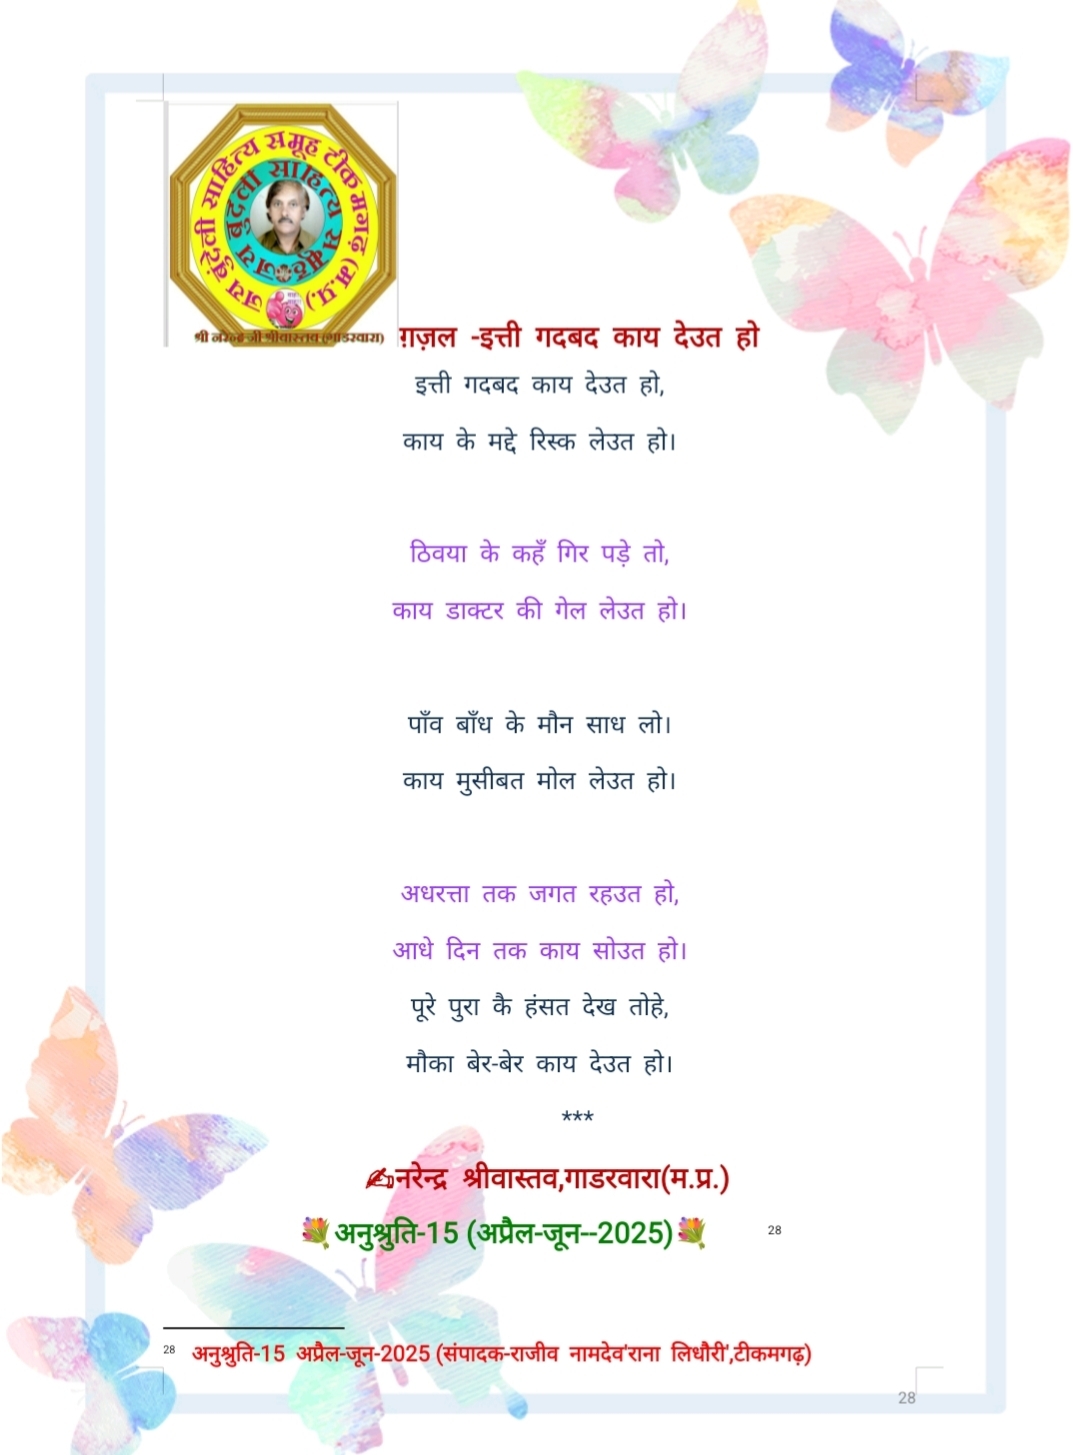 जय बुंदेली साहित्य समूह टीकमगढ़ (म.प्र.)
जय बुंदेली साहित्य समूह
श्री नरेन्द्र जी श्रीवास्तव (गाडरवारा)
ग़ज़ल -इत्ती गदबद काय देउत हो
इत्ती गदबद काय देउत हो,
काय के मद्दे रिस्क लेउत हो।
ठिवया के कहँ गिर पड़े तो,
काय डाक्टर की गेल लेउत हो।
पाँव बाँध के मौन साध लो।
काय मुसीबत मोल लेउत हो।
अधरत्ता तक जगत रहउत हो,
आधे दिन तक काय सोउत हो।
पूरे पुरा कै हंसत देख तोहे,
मौका बेर-बेर काय देउत हो।
***
✍नरेन्द्र श्रीवास्तव,गाडरवारा(म.प्र.)
💐अनुश्रुति-15 (अप्रैल-जून--2025)💐 28
28 अनुश्रुति-15 अप्रैल-जून-2025 (संपादक-राजीव नामदेव'राना लिधौरी',टीकमगढ़)
28